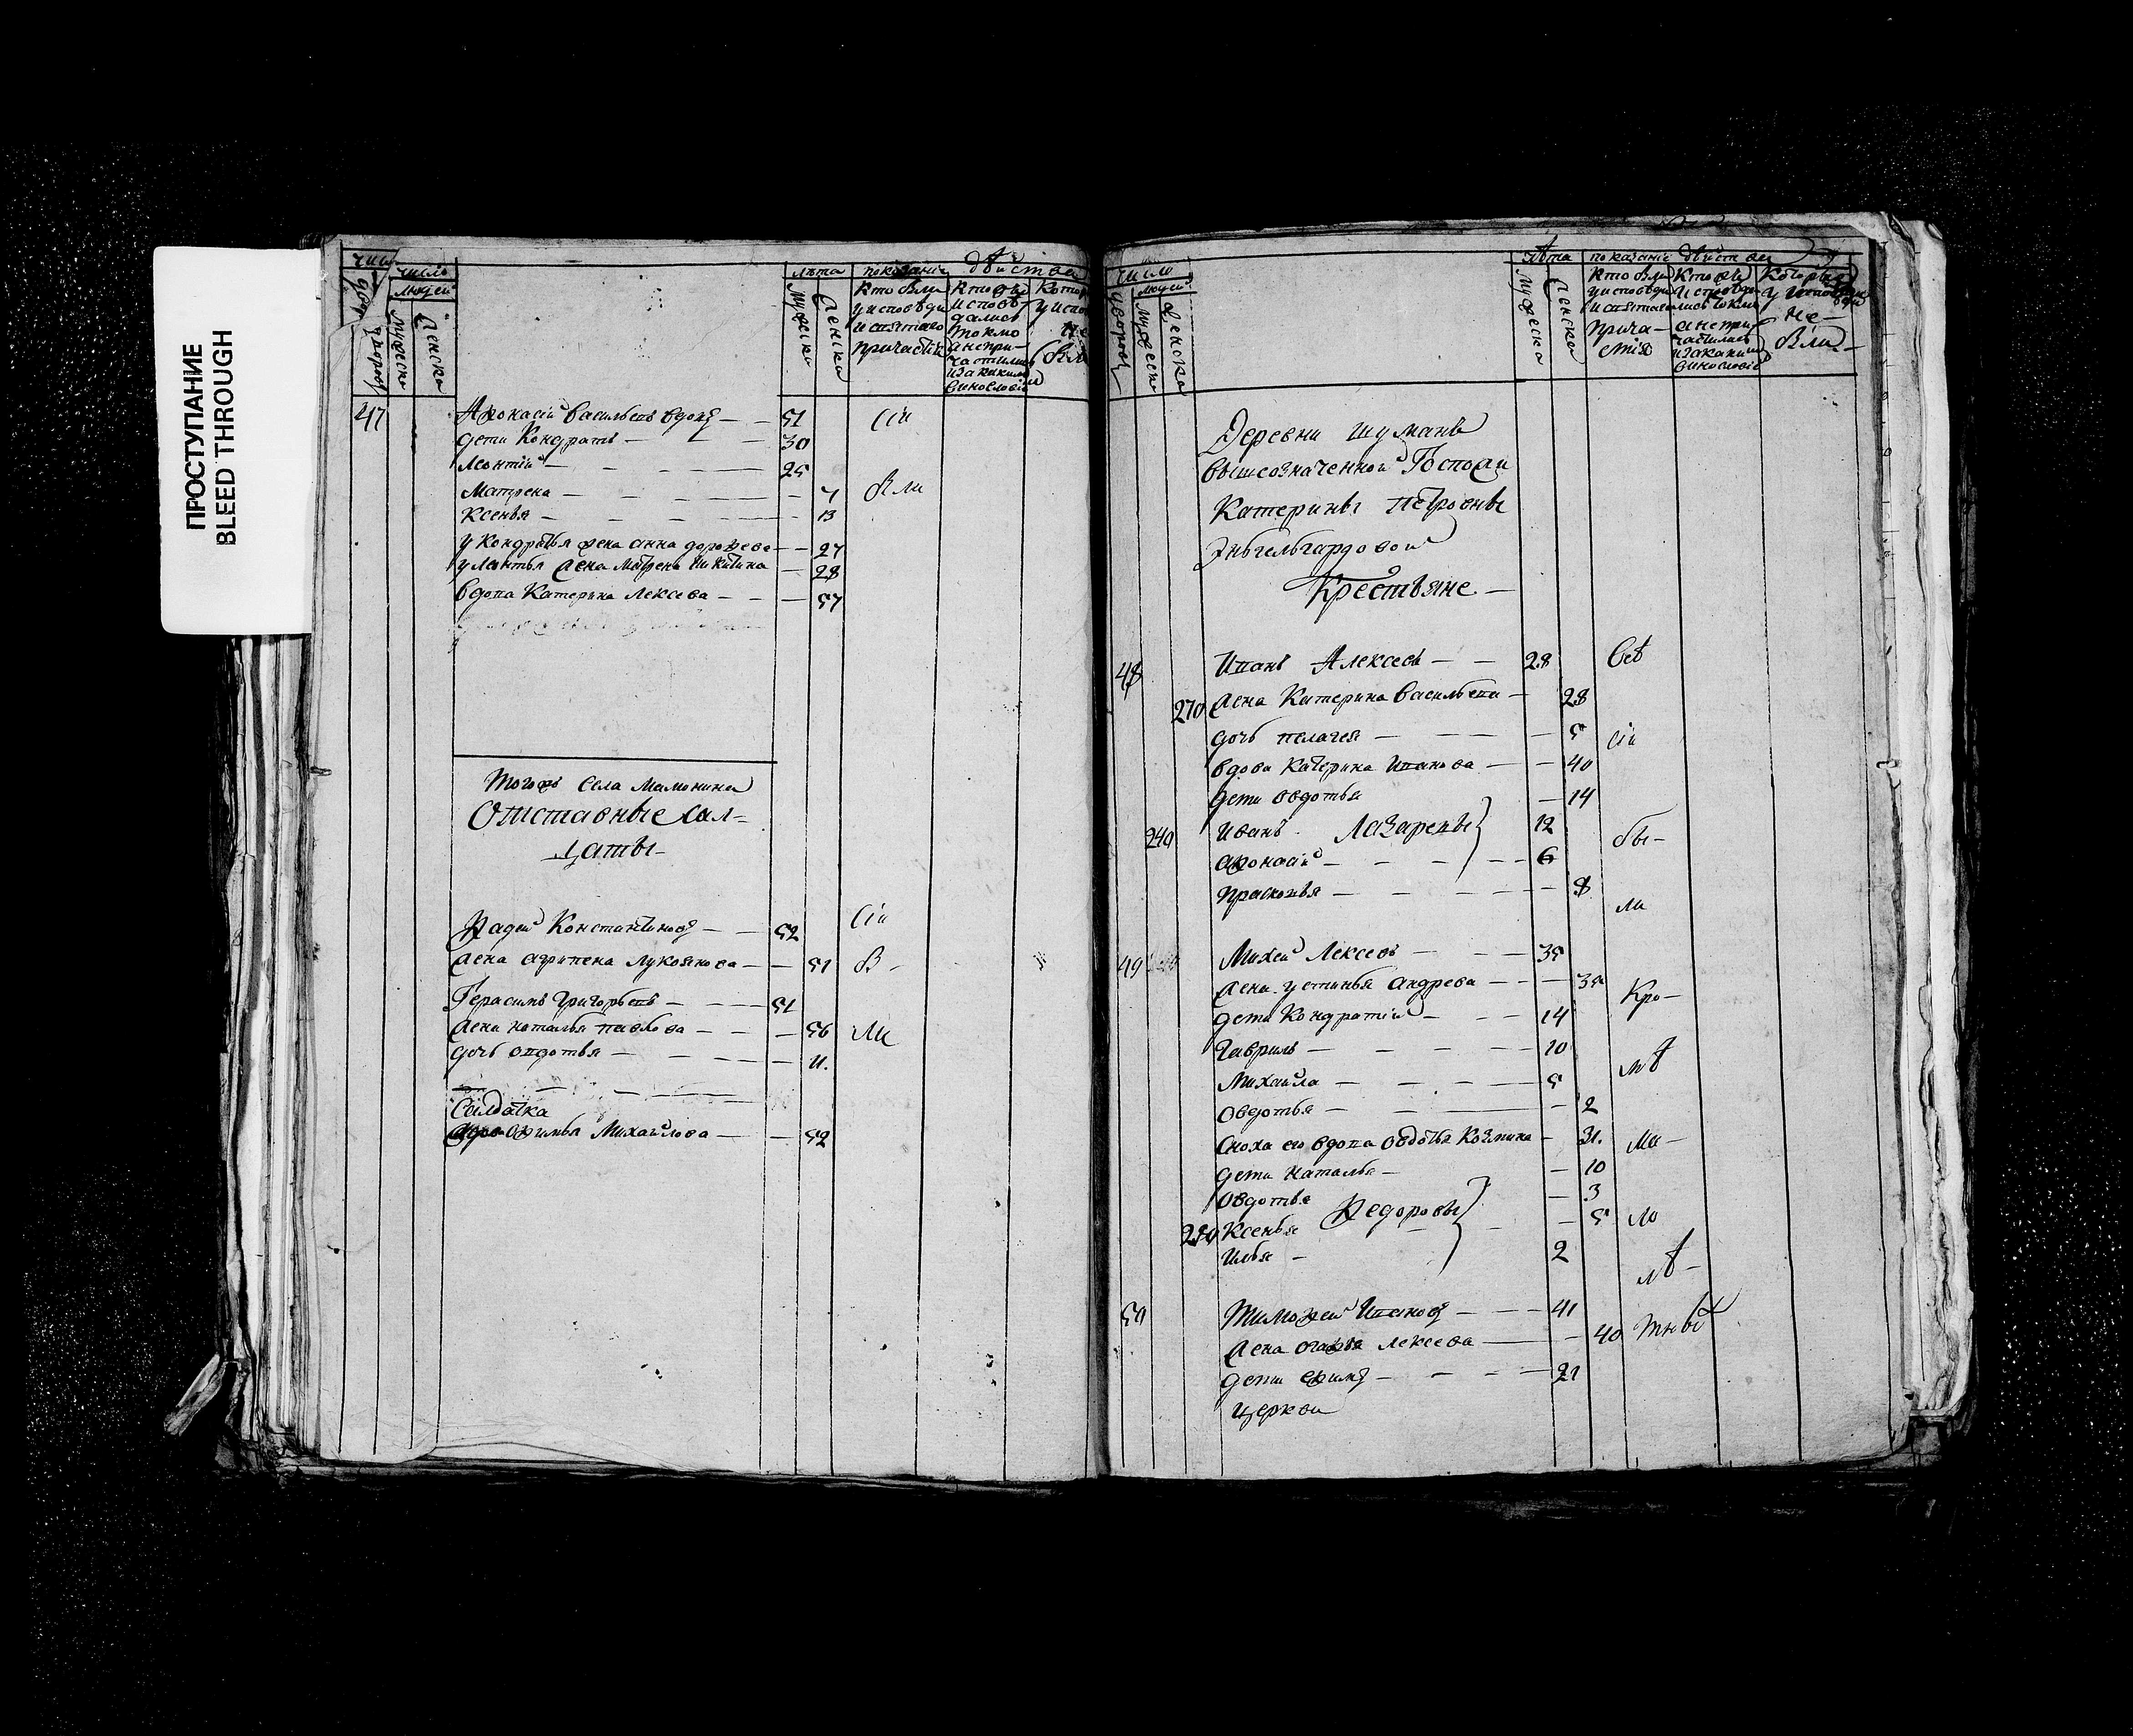 ПРОСТУПАНИЕ
BLEED THROUGH
число
людей
мужеска
женска
лѣта
показаніе действа
мужеска
женска
кто были
у исповѣди
и святаго
причастія
кто же
исповѣ
дались
токмо
а не при-
частились
и за каким
винословіем
47 Афонасій Васильевъ вдовъ — 51 сіи
дети Кондратъ — 30
Леонтій — 25
Матрена — 7 бли
Ксенья — 13
у Кондратья жена Анна Дорофеева — 27
у Леонтья жена Матрена Никитина — 28
вдова Катерина Лексева — 57
Тогожъ села Мамонина
Отставные сал-
даты
Фадей Константиновъ — 52 сіи
жена Агрипена Лукоянова — 51 б-
Герасимъ Григорьевъ — 51
жена Наталья Павлова — 56 ли
дочь Овдотья — 11.
Салдатка
Офимья Михайлова — 52
число
людей
дворовъ
мужеска
женска
лѣта
показаніе действа
мужеска
женска
кто были
у исповѣди
и святаго
прича-
стія
кто же
исповѣда-
лись токмо
а не при
частились
и за каким
винословіе
которые
у исповѣди
не-
были-
Деревни Шумани
вышеозначенной Госпожи
Катерины Петровны
Энгельгардовой
Крестьяне. —
48 Иванъ Алексевъ — 28 всѣ
270 жена Катерина Васильева — 28
дочь Пелагея — 5 сіи
вдова Катерина Иванова — 40
дети Овдотья — 14
240 Иванъ Лазаревы 12 бы-
Афонасій — 6
Прасковья — 8 ли
49 Михей Лексевъ — 35
жена Устинья Андрева — 35 Кро-
дети Кондратій — 14
Гаврилъ — 10 мѣ
Михайла — 5
Овдотья — 2
сноха его вдова Овдотья Козмина — 31. ма-
дети Наталья — 10
Овдотья — 3
280 Ксенья Федоровы — 5 ло
Илья — 2 лѣ-
50 Тимофей Ивановъ — 41
жена Огафья Лексева — 40 тныхъ
дети Ефимъ — 21
церкви